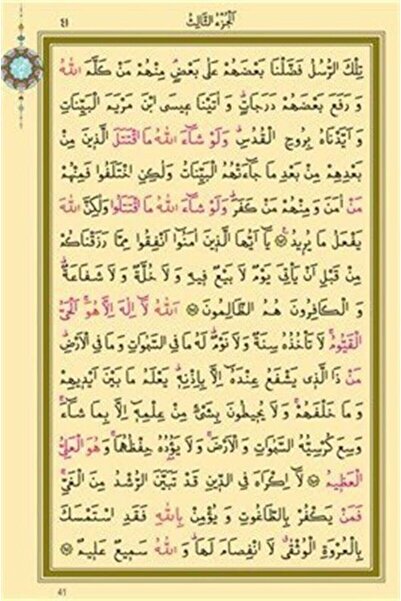 ٤١ اَلْجُزْءُ الثَّالِثُ
تِلْكَ الرُّسُلُ فَضَّلْنَا بَعْضَهُمْ عَلٰى بَعْضٍ مِنْهُمْ مَنْ كَلَّمَ اللّٰهُ
وَ رَفَعَ بَعْضَهُمْ دَرَجَاتٍ وَ اٰتَيْنَا عِيسَى ابْنَ مَرْيَمَ الْبَيِّنَاتِ
وَ اَيَّدْنَاهُ بِرُوحِ الْقُدُسِ وَلَوْ شَاءَ اللّٰهُ مَا اقْتَتَلَ الَّذِينَ مِنْ
بَعْدِهِمْ مِنْ بَعْدِ مَا جَاءَتْهُمُ الْبَيِّنَاتُ وَلٰكِنِ اخْتَلَفُوا فَمِنْهُمْ
مَنْ اٰمَنَ وَ مِنْهُمْ مَنْ كَفَرَ وَلَوْ شَاءَ اللّٰهُ مَا اقْتَتَلُوا وَلٰكِنَّ اللّٰهَ
يَفْعَلُ مَا يُرِيدُ يَا اَيُّهَا الَّذِينَ اٰمَنُوا اَنْفِقُوا مِمَّا رَزَقْنَاكُمْ
مِنْ قَبْلِ اَنْ يَأْتِيَ يَوْمٌ لَا بَيْعٌ فِيهِ وَ لَا خُلَّةٌ وَ لَا شَفَاعَةٌ
وَ الْكَافِرُونَ هُمُ الظَّالِمُونَ اَللّٰهُ لَا اِلٰهَ اِلَّا هُوَ الْحَيُّ
الْقَيُّومُ لَا تَأْخُذُهُ سِنَةٌ وَ لَا نَوْمٌ لَهُ مَا فِي السَّمٰوَاتِ وَ مَا فِي الْاَرْضِ
مَنْ ذَا الَّذِي يَشْفَعُ عِنْدَهُ اِلَّا بِاِذْنِهِ يَعْلَمُ مَا بَيْنَ اَيْدِيهِمْ
وَ مَا خَلْفَهُمْ وَ لَا يُحِيطُونَ بِشَيْءٍ مِنْ عِلْمِهِ اِلَّا بِمَا شَاءَ
وَسِعَ كُرْسِيُّهُ السَّمٰوَاتِ وَ الْاَرْضَ وَ لَا يَؤُدُهُ حِفْظُهُمَا وَ هُوَ الْعَلِيُّ
الْعَظِيمُ لَا اِكْرَاهَ فِي الدِّينِ قَدْ تَبَيَّنَ الرُّشْدُ مِنَ الْغَيِّ
فَمَنْ يَكْفُرْ بِالطَّاغُوتِ وَ يُؤْمِنْ بِاللّٰهِ فَقَدِ اسْتَمْسَكَ
بِالْعُرْوَةِ الْوُثْقٰى لَا انْفِصَامَ لَهَا وَ اللّٰهُ سَمِيعٌ عَلِيمٌ
41